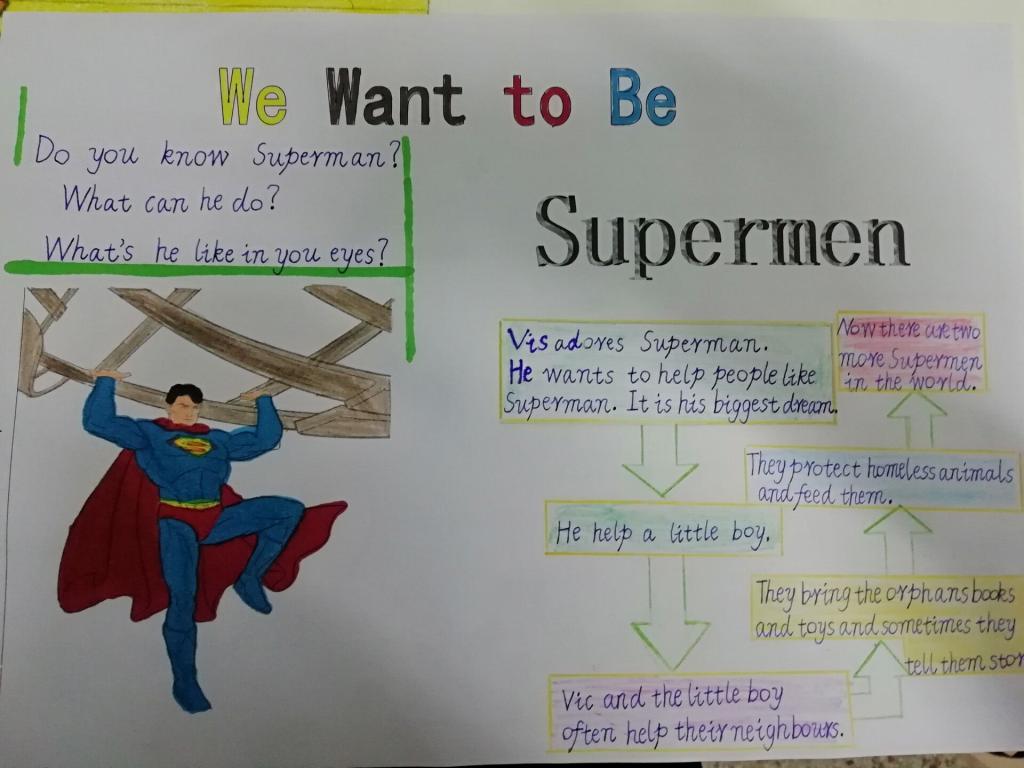 We Want to Be
Supermen
Do you know Superman?
What can he do?
What's he like in you eyes?
Vis adores Superman.
He wants to help people like
Superman. It is his biggest dream.
He help a little boy.
Vic and the little boy
often help their neighbours.
They bring the orphans books
and toys and sometimes they
tell them
They protect homeless animals
and feed them.
Now there are two
more Supermen
in the world.